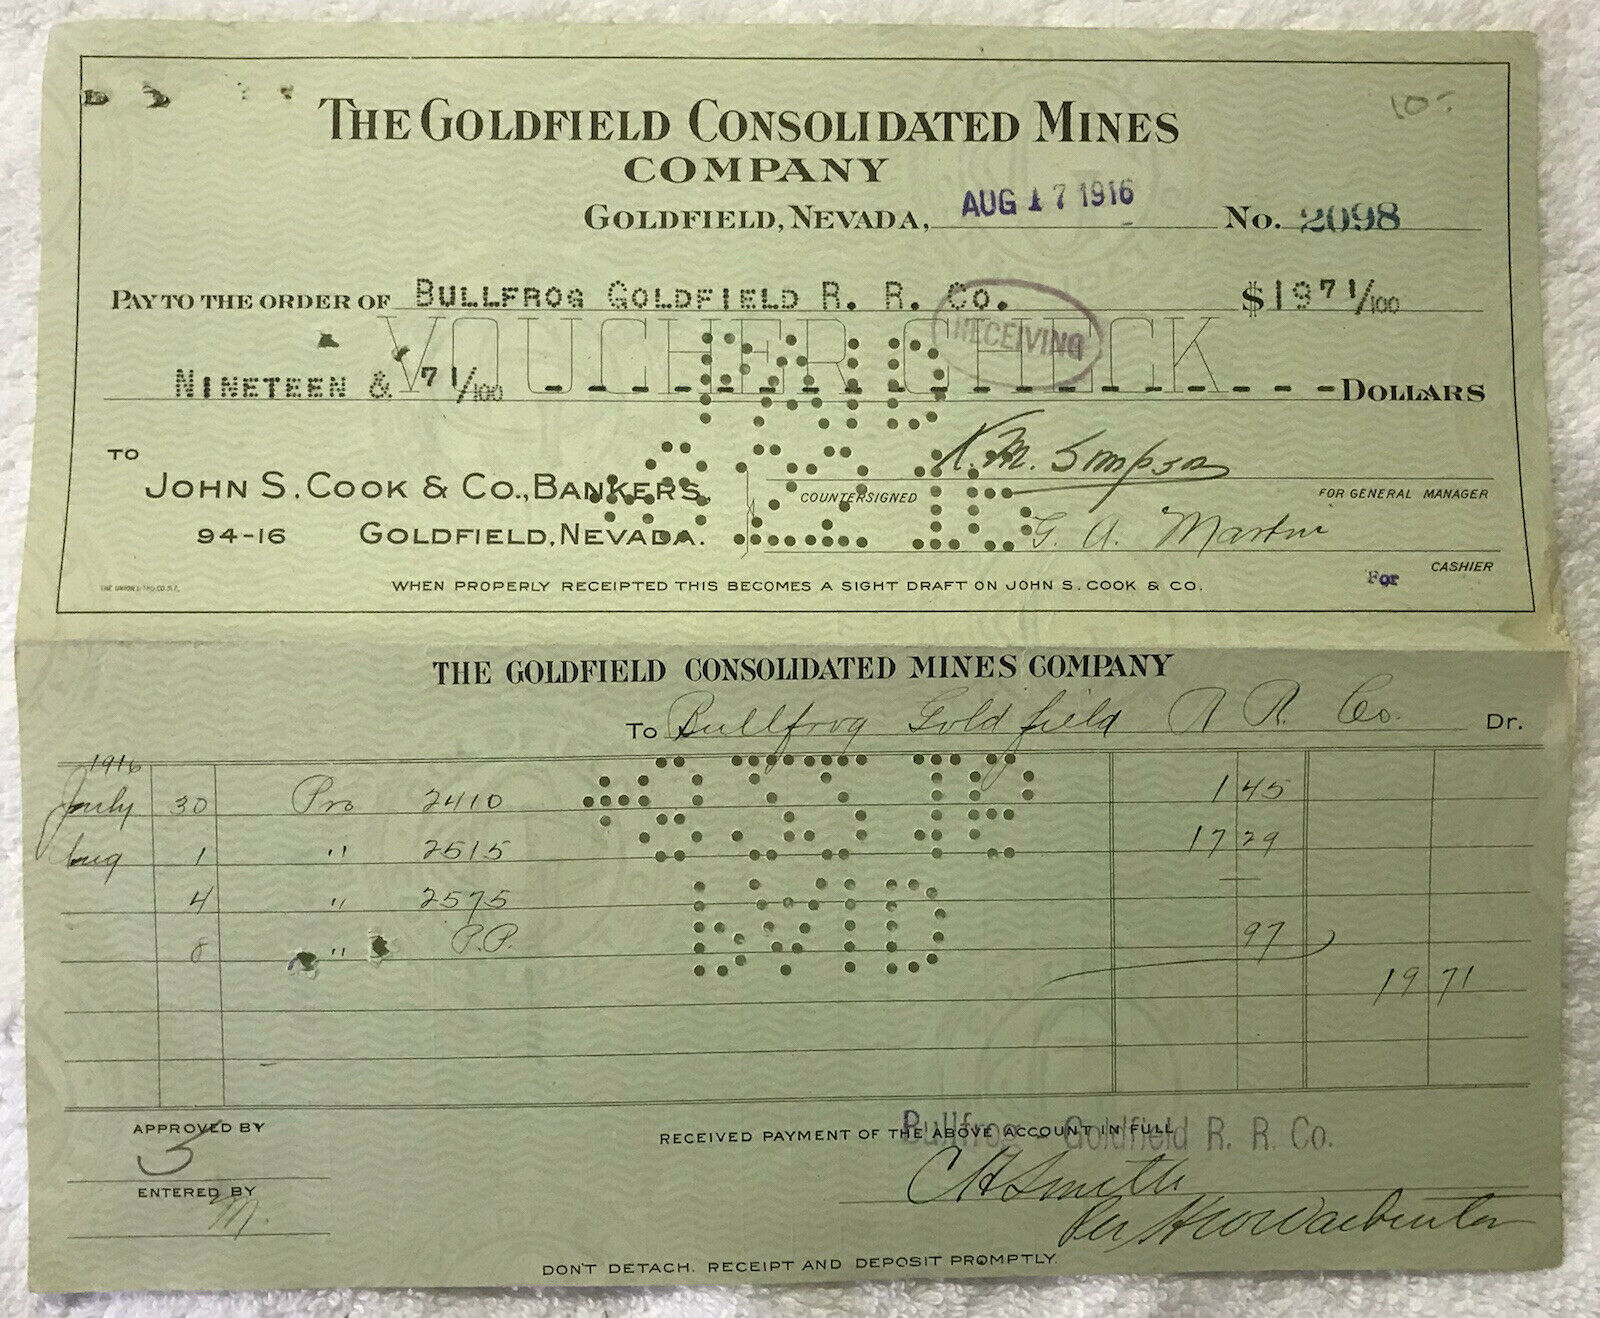 10-
THE GOLDFIELD CONSOLIDATED MINES
COMPANY
GOLDFIELD, NEVADA, AUG 17 1916 No. 2098
PAY TO THE ORDER OF BULLFROG GOLDFIELD R. R. CO. $197 1/100
RECEIVING
VOUCHER CHECK
NINETEEN & 71/100 DOLLARS
PAID
TO
JOHN S. COOK & CO., BANKERS,
94-16 GOLDFIELD, NEVADA.
COUNTERSIGNED
FOR GENERAL MANAGER
G. A. Martin
For CASHIER
WHEN PROPERLY RECEIPTED THIS BECOMES A SIGHT DRAFT ON JOHN S. COOK & CO.
THE GOLDFIELD CONSOLIDATED MINES COMPANY
To Bullfrog Goldfield R. R. Co. Dr.
1916
July 30 Pro 2410 1 45
Aug 1 " 2515 17 29
4 " 2575 —
8 " P.P. 97
19 71
APPROVED BY
S
ENTERED BY
M.
RECEIVED PAYMENT OF THE ABOVE ACCOUNT IN FULL
Bullfrog - Goldfield R. R. Co.
C H Smith
Per
DON'T DETACH. RECEIPT AND DEPOSIT PROMPTLY.